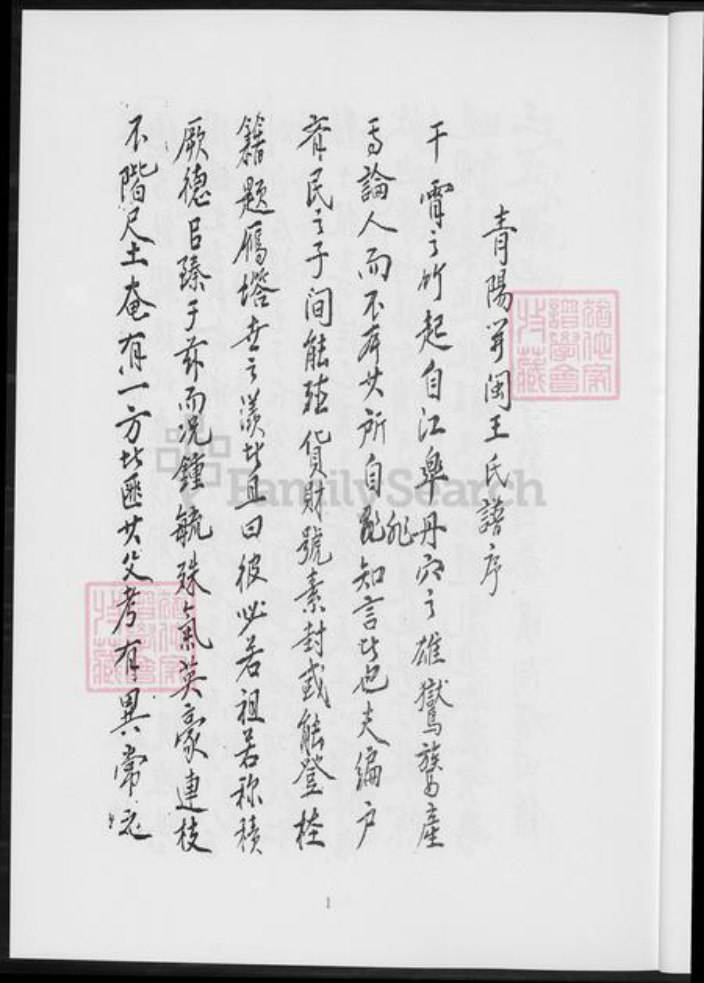 青陽開閩王氏譜序
干霄之竹起自江皋丹穴之雄鸑鷟產
焉論人而不存其所自非知言者也夫編户
齊民之子间能殖貨財號素封或能登桂
籍題鴈塔世之羡者且曰彼必若祖若称積
厥德以臻于兹而况鍾毓殊氣英豪連枝
不階尺土奄有一方者匪其父考有異常
諸姓
譜學會
特藏
FamilySearch
1